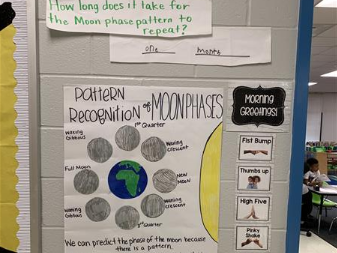 How long does it take for
the Moon phase pattern to
repeat?
one month
Pattern
Recognition of MOON PHASES
1st Quarter
Waxing
Gibbous
Waxing
Crescent
Full Moon
New
Moon
Waning
Gibbous
Waning
Crescent
3rd Quarter
We can predict the phase of the moon because
there is a pattern.
MORNING
GREETINGS!
Fist Bump
Thumbs up
High Five
Pinky
Shake